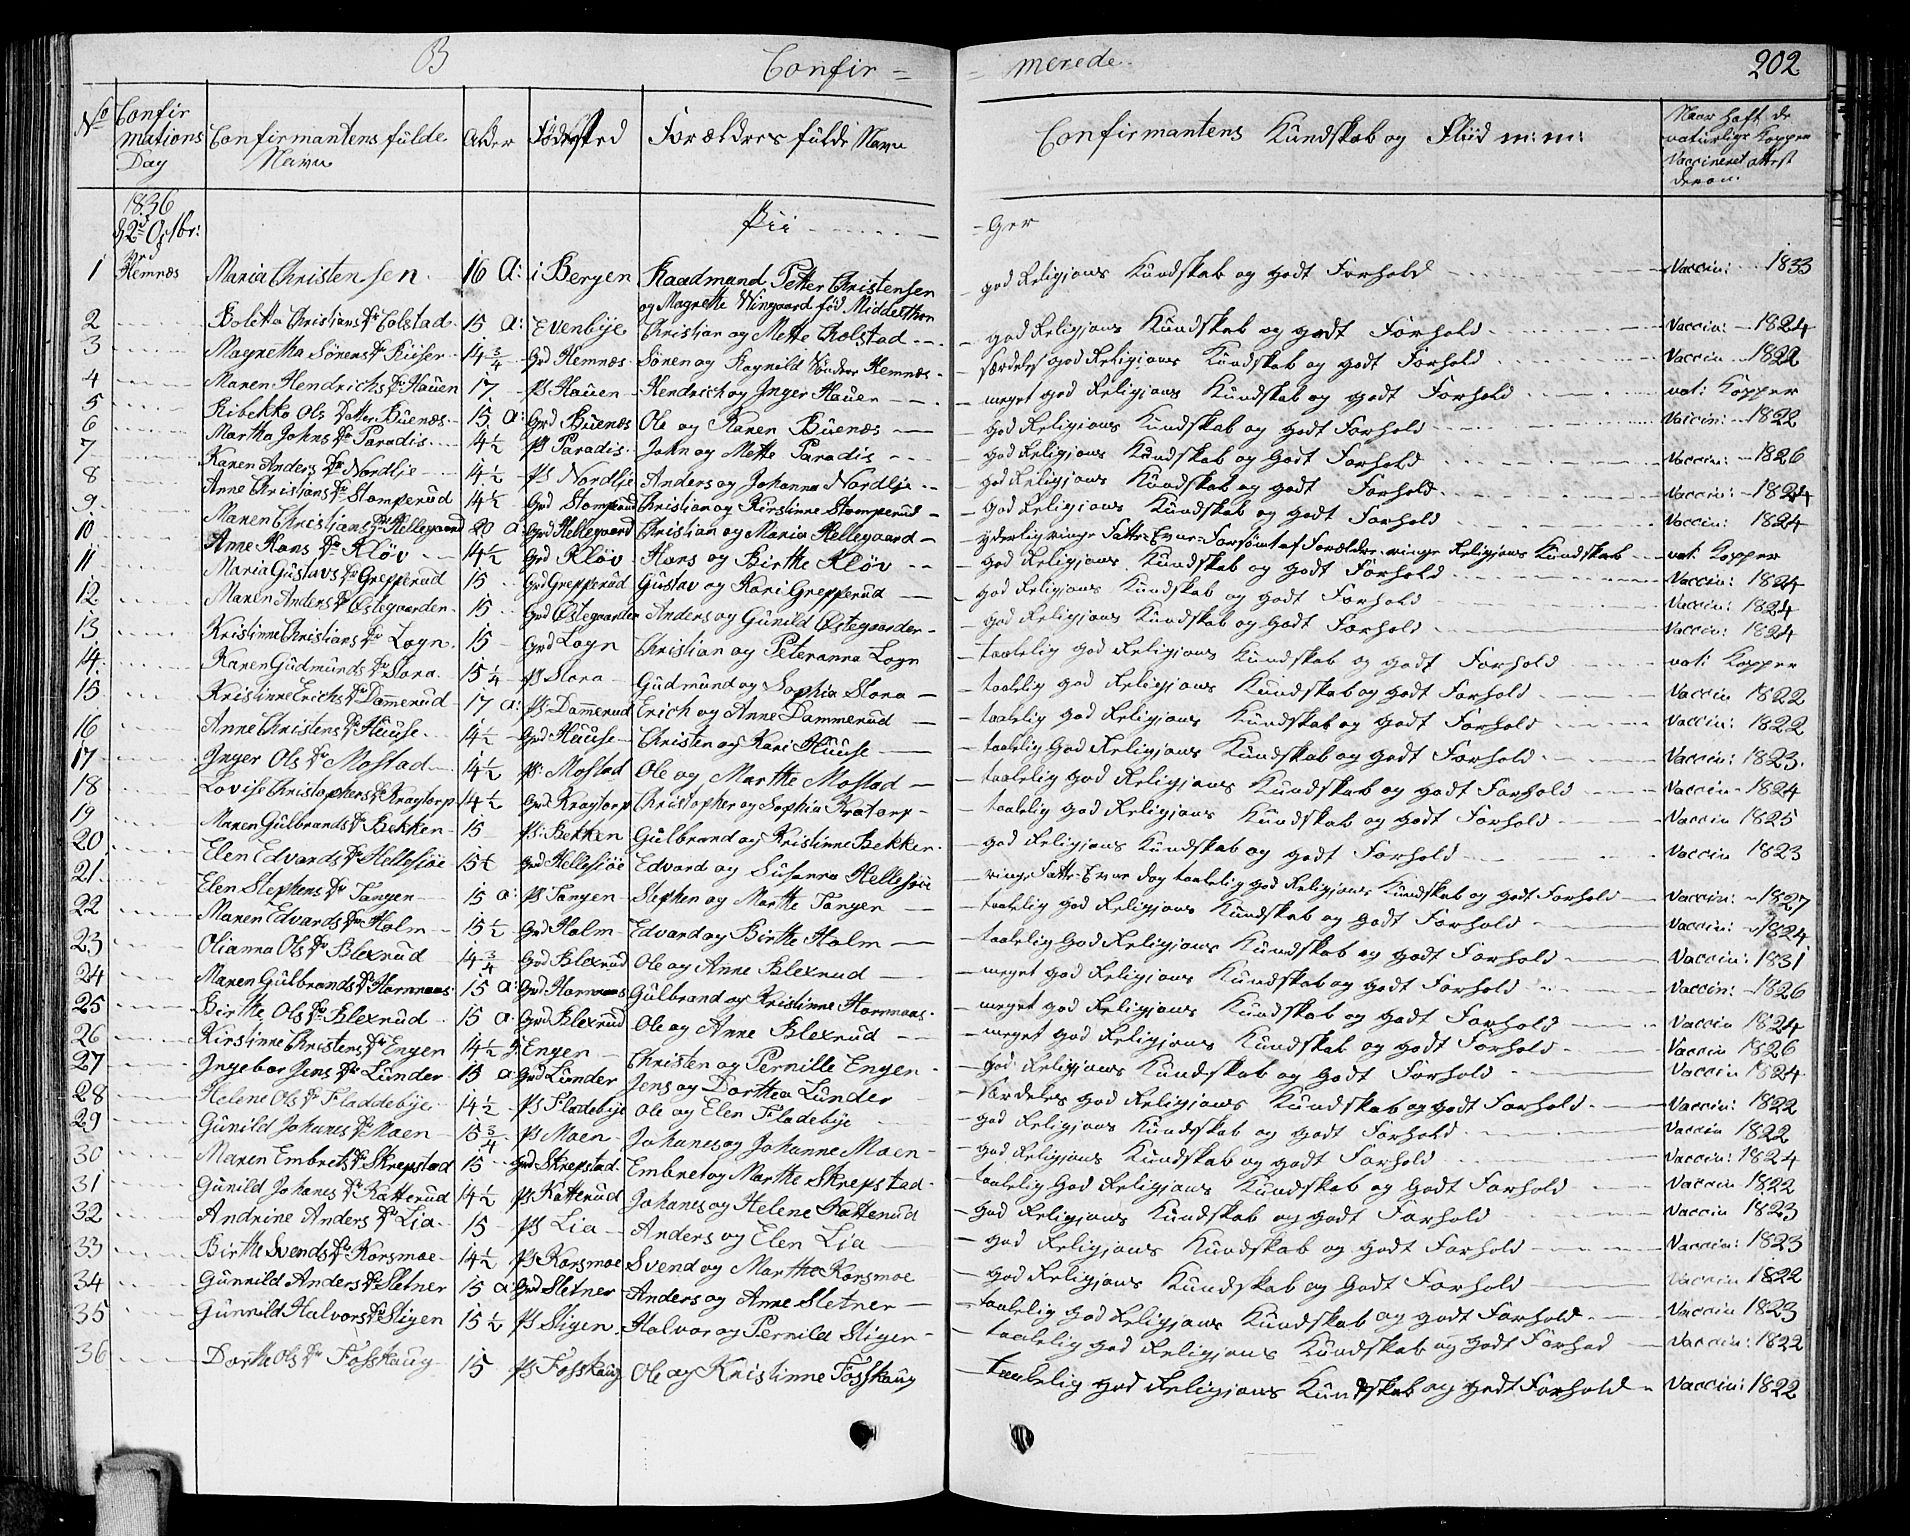 B Confir = = merede 202
No Confirmations Dag Confirmantens fulde Navn Alder Fødested Forældres fulde Navn Confirmantens Kundskab og Fliid m: m: Naar haft de naturlige Kopper Vaccineret attest derom
1836
d 2d Octbr: Pii - Ger
1 Hemnæs Maria Christensen 16 A: i Bergen Raadmand Petter Christensen og Magrethe Wingaard fød Middelthon god Religions Kundskab og godt Forhold Vaccin: 1833
2 Boletta Christians Dr Colstad 15 a: Evenbye Christian og Mette Cholstad god Religions Kundskab og godt Forhold Vaccin: 1824
3 Magretha Sørens Dr Buser 14 3/4 Grd Hemnæs Søren og Ragnild Hemnæs særdeles god Religions Kundskab og godt Forhold Vaccin 1822
4 Maren Hendrichs Dr Hauen 17 Ps Hauen Hendrich og Inger Hauen meget god Religions Kundskab og godt Forhold nati Kopper
5 Ribekka Ols Datter Buenæs 15 a: Grd Buenæs Ole og Karen Buenæs god Religions Kundskab og godt Forhold Vaccin: 1822
6 Martha Johns Dr Paradis 14 1/2 Ps Paradis John og Mette Paradis god Religions Kundskab og Godt Forhold Vaccin: 1826
7 Karen Anders Dr Nordlie 14 1/2 Ps Nordlie Anders og Johanna Nordlie god Religions Kundskab og godt Forhold Vaccin: 1824
8 Anne Christians Dr Stomperud 14 1/2 Grd Stomperud Christian og Kirstinne Stomperud god Religions Kundskab og godt Forhold Vaccin: 1824
9 Maren Christians Dr Hellegaard 20 a Grd Hellegaard Christian og Maria Hellegaard yderlig ringe Fatte-Evne Forsømt af Forældre ringe Religions Kundskab nati Kopper
10 Anne Hans Dr Kløv 14 1/2 Grd Kløv Hans og Birthe Kløv god Religions Kundskab og godt Forhold Vaccin: 1824
11 Maria Gustavs Dr Grepperud 15 Grd Grepperud Gustav og Kari Grepperud god Religions Kundskab og godt Forhold Vaccin: 1824
12 Maren Anders Dr Østegaarden 15 Grd Østegaarden Anders og Gunild Østegaarden god Religions Kundskab og Godt Forhold Vaccin: 1824
13 Kristinne Christians Dr Logn 15 Grd Logn Christian og Peteranna Logn taalelig god Religions Kundskab og godt Forhold nati Kopper
14 Karen Gudmunds Dr Slora 15 1/4 Ps Slora Gudmund og Sophia Slora taalelig god Religions Kundskab og godt Forhold Vaccin 1822
15 Kristinne Erichs Dr Dammerud 17 a: Ps: Dammerud Erich og Anne Dammerud taalelig god Religions Kundskab og godt Forhold Vaccin: 1822
16 Anne Christens Dr Huuse 14 1/2 Grd Huuse Christen og Kari Huuse taalelig God Religions Kundskab og godt Forhold Vaccin: 1823
17 Inger Ols Dr Mostad 14 1/2 Ps: Mostad Ole og Marthe Mostad taalelig god Religions Kundskab og godt Forhold Vaccin 1824
18 Lovise Christophers Dr Kragtorp 14 1/2 Grd Kragtorp Christopher og Sophia Kratorp taalelig god Religions Kundskab og godt Forhold Vaccin 1825
19 Maren Gulbrands Dr Bekken 15 Ps: Bekken Gulbrand og Kristinne Bekken god Religions Kundskab og godt Forhold Vaccin 1823
20 Elen Edvards Dr Hellesiøe 15 1/2 Grd Hellesiøe Edvard og Susanna Hellesiøe ringe Fatte-Evne dog taalelig god Religions Kundskab og godt Forhold Vaccin: 1827
21 Elen Stephens Dr Tangen 15 a: Ps Tangen Stephen og Marthe Tangen taalelig god Religions Kundskab og godt Forhold Vaccin: 1824
22 Maren Edvards Dr Holm 15 1/2 Grd Holm Edvard og Birthe Holm taalelig God Religions Kundskab og godt Forhold Vaccin: 1831
23 Olianna Ols Dr Blexrud 14 3/4 Grd Blexrud Ole og Anne Blexrud meget god Religions Kundskab og godt Forhold Vaccin: 1826
24 Maren Gulbrands Dr Hornnæs 15 a: Grd Hornnæs Gulbrand og Kristinne Hornnæs meget god Religions Kundskab og godt Forhold Vaccin 1824
25 Birthe Ols Dr Blexrud 15 a Grd Blexrud Ole og Anne Blexrud meget god Religions Kundskab og godt Forhold Vaccin 1826
26 Kirstinne Christens Dr Engen 14 1/2 Engen Christen og Pernille Engen god Religions Kundskab og godt Forhold Vaccin 1824
27 Ingebor Jens Dr Lunder 15 a Grd Lunder Jens og Dorthea Lunder særdeles god Religions Kundskab og godt Forhold Vaccin: 1822
28 Helene Ols Dr Fladdebye 14 1/2 Ps Fladebye Ole og Elen Fladebye god Religions Kundskab og godt Forhold Vaccin 1822
29 Gunild Johanes Dr Moen 15 3/4 Ps Moen Johanes og Johanne Moen god Religions Kundskab og godt Forhold Vaccin: 1824
30 Maren Embrets Dr Skrepstad 15 Grd Skrepstad Embret og Marthe Skrepstad taalelig God Religions Kundskab og Godt Forhold Vaccin 1822
31 Gunild Johanes Dr Katterud 14 1/2 Ps Katterud Johanes og Helene Katterud god Religions Kundskab og godt Forhold Vaccin 1823
32 Andrine Anders Dr Lia 15 Ps Lia Anders og Elen Lia god Religions Kundskab og godt Forhold Vaccin: 1823
33 Birthe Svends Dr Korsmoe 14 1/2 Ps Korsmoe Svend og Marthe Korsmoe god Religions Kundskab og Godt Forhold Vaccin 1822
34 Gunnild Anders Dr Sletner 15 a Grd Sletner Anders og Anne Sletner taalelig god Religions Kundskab og godt Forhold Vaccin 1823
35 Gunnild Halvors Dr Stigen 15 1/2 Ps Stigen Halvor og Pernild Stigen taalelig god Religions Kundskab og godt Forhod Vaccin: 1822
36 Dorthe Ols Dr Fosshaug 15 Ps Fosshaug Ole og Kristinne Fosshaug taalelig god Religions Kundskab og godt Forhold Vaccin: 1822